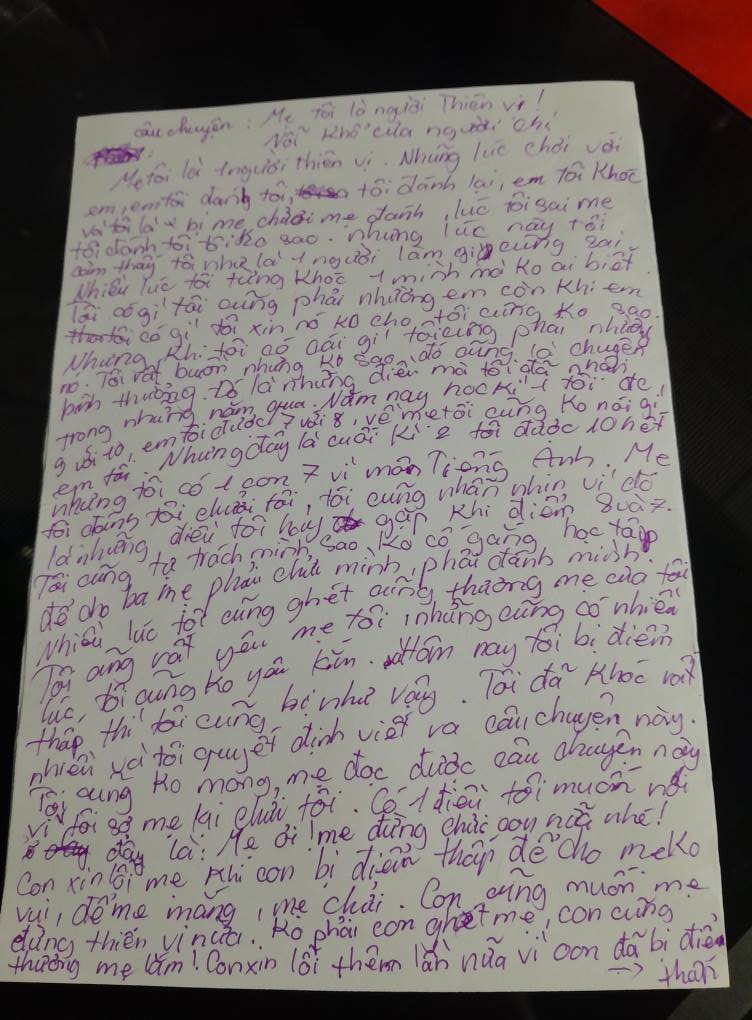 câu chuyện: Mẹ tôi là người Thiên vị!
Nỗi khổ của người chị
Mẹ tôi là 1 người thiên vị. Những lúc chơi với
em, em tôi đánh tôi, tôi đánh lại, em tôi khóc
và tôi là bị mẹ chửi mẹ đánh, lúc tôi sai mẹ
tôi đánh tôi tôi ko sao. nhưng lúc này tôi
cảm thấy tôi như là 1 người làm gì cũng sai.
Nhiều lúc tôi từng khóc 1 mình mà ko ai biết.
Tôi có gì tôi cũng phải nhường em còn khi em
có gì tôi xin nó ko cho, tôi cũng ko sao.
Nhưng khi tôi có cái gì tôi cũng phải nhường
nó. Tôi rất buồn nhưng ko sao, đó cũng là chuyện
bình thường. Đó là những điều mà tôi đã nhận
trong những năm qua. Năm nay học kì 1 tôi đc
9 với 10, em tôi được 7 với 8, về mẹ tôi cũng ko nói gì
em tôi. Nhưng đây là cuối kì 2 tôi được 10 hết
nhưng tôi có 1 con 7 vì môn Tiếng Anh. Mẹ
tôi đánh tôi chửi tôi, tôi cũng nhẫn nhịn vì đó
là những điều tôi hay gặp khi điểm 8 và 7.
Tôi cũng tự trách mình, sao ko cố gắng học tập
để cho ba mẹ phải chửi mình, phải đánh mình.
Nhiều lúc tôi cũng ghét cũng thương mẹ của tôi
Tôi cũng rất yêu mẹ tôi, nhưng cũng có nhiều
lúc, tôi cũng ko yêu lắm. Hôm nay tôi bị điểm
thấp thì tôi cũng bị như vậy. Tôi đã khóc rất
nhiều và tôi quyết định viết ra câu chuyện này.
Tôi cũng ko mong, mẹ đọc được câu chuyện này
vì tôi sợ mẹ lại chửi tôi. Có 1 điều tôi muốn nói
ở đây là: Mẹ ơi! mẹ đừng chửi con nữa nhé!
Con xin lỗi mẹ khi con bị điểm thấp để cho mẹ ko
vui, để mẹ mắng, mẹ chửi. Con cũng muốn mẹ
đừng thiên vị nữa. Ko phải con ghét mẹ, con cũng
thương mẹ lắm! Con xin lỗi thêm lần nữa vì con đã bị điểm
→ thấp